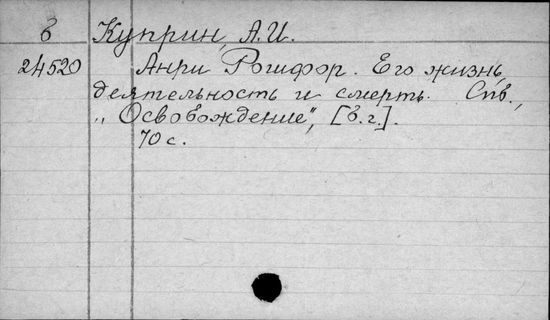 6 Куприн, А.И.
24520 Анри Рошфор. Его жизнь,
деятельность и смерть. Спв.,
„Освобождение", [б.г.].
70 с.